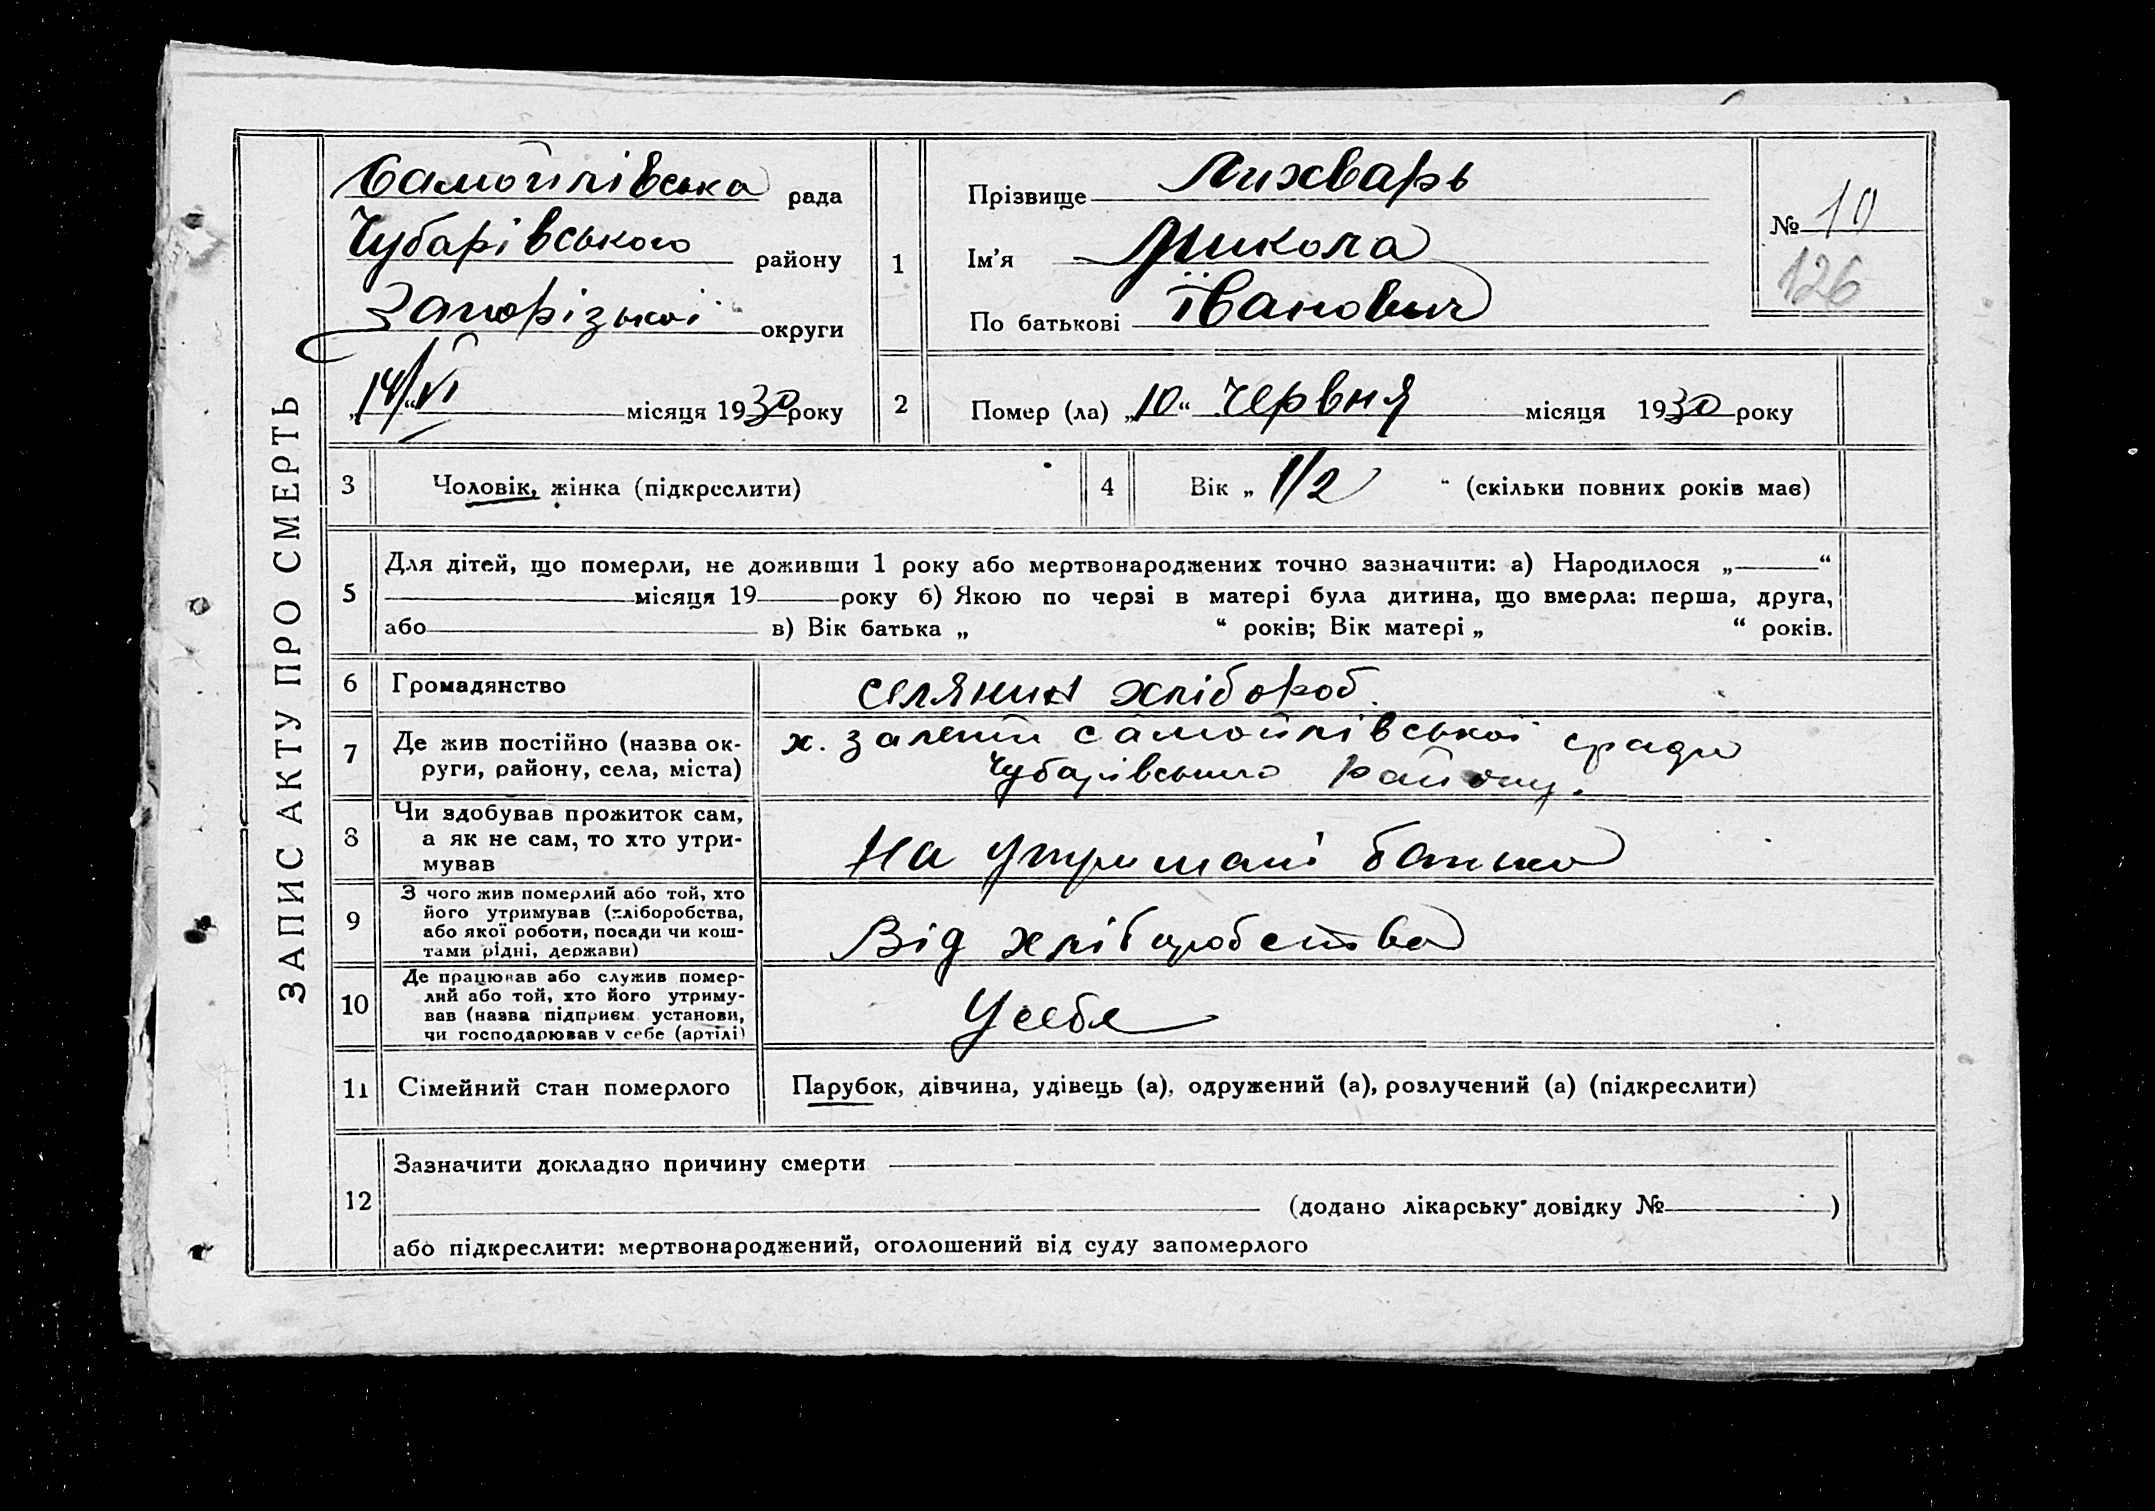 ЗАПИС АКТУ ПРО СМЕРТЬ
Самойлівська рада
Чубарівського району
Запорізької округи
„14/VI“ місяця 1930 року
1
Прізвище Лихварь
Ім’я Микола
По батькові Іванович
№ 10
126
2
Помер (ла) „10“ червня місяця 1930 року
3 Чоловік, жінка (підкреслити)
4 Вік „ 1/2 “ (скільки повних років має)
5
Для дітей, що померли, не доживши 1 року або мертвонароджених точно зазначити: а) Народилося „ “
місяця 19 року б) Якою по черзі в матері була дитина, що вмерла: перша, друга,
або в) Вік батька „ “ років; Вік матері „ “ років.
6 Громадянство
селянин хлібороб.
7 Де жив постійно (назва ок-
руги, району, села, міста)
х. Самойлівської сради
Чубарівського району.
8 Чи здобував прожиток сам,
а як не сам, то хто утри-
мував
На утримані батька
9 З чого жив померлий або той, хто
його утримував (хліборобства,
або якої роботи, посади чи кош-
тами рідні, держави)
Від хліборобства
10 Де працював або служив помер-
лий або той, хто його утриму-
вав (назва підприєм. установи,
чи господарював у себе (артілі)
У себе
11 Сімейний стан померлого
Парубок, дівчина, удівець (а), одружений (а), розлучений (а) (підкреслити)
12
Зазначити докладно причину смерти
(додано лікарську довідку № )
або підкреслити: мертвонароджений, оголошений від суду запомерлого